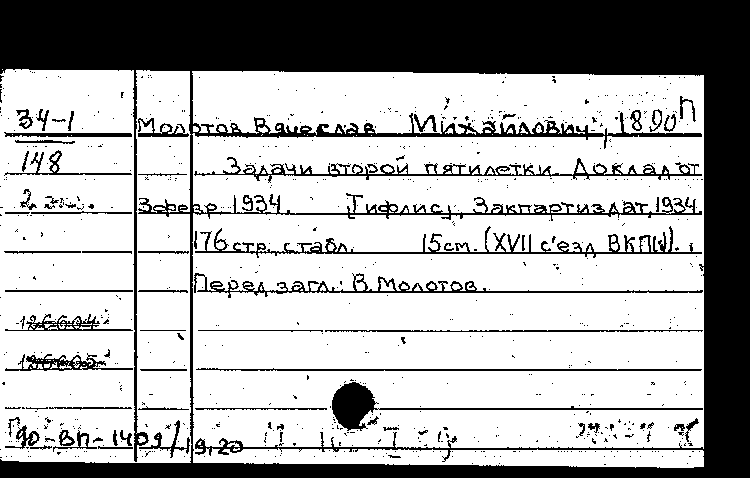 34-1 Молотов, Вячеслав Михайлович, 1890 П
148 Задачи второй пятилетки. Доклад от
2 экз. 3 февр. 1934. [Тифлис], Закпартиздат, 1934.
176 стр. с табл. 15 см. (XVII с'езд ВКП(б)).
Перед загл.: В. Молотов.
126604
126605
90-ВП-1409/19,20